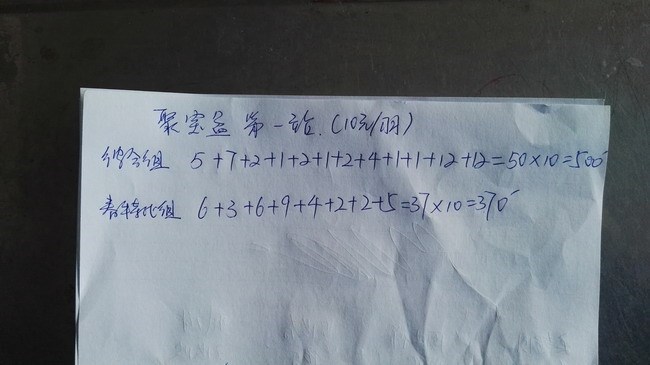 聚宝盆第一站.(10元/羽)
综合组 5+7+2+1+2+1+2+4+1+1+12+12=50×10=500
6+3+6+9+4+2+2+5=37×10=370